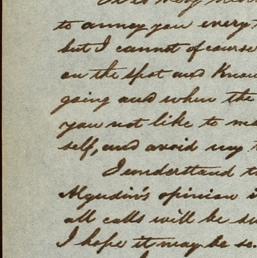 to annoy you every
but I cannot of course
on the spot and know
going and when the
you not like to
self, and avoid my
I understand
opinion
all calls will be
I hope it may be so.